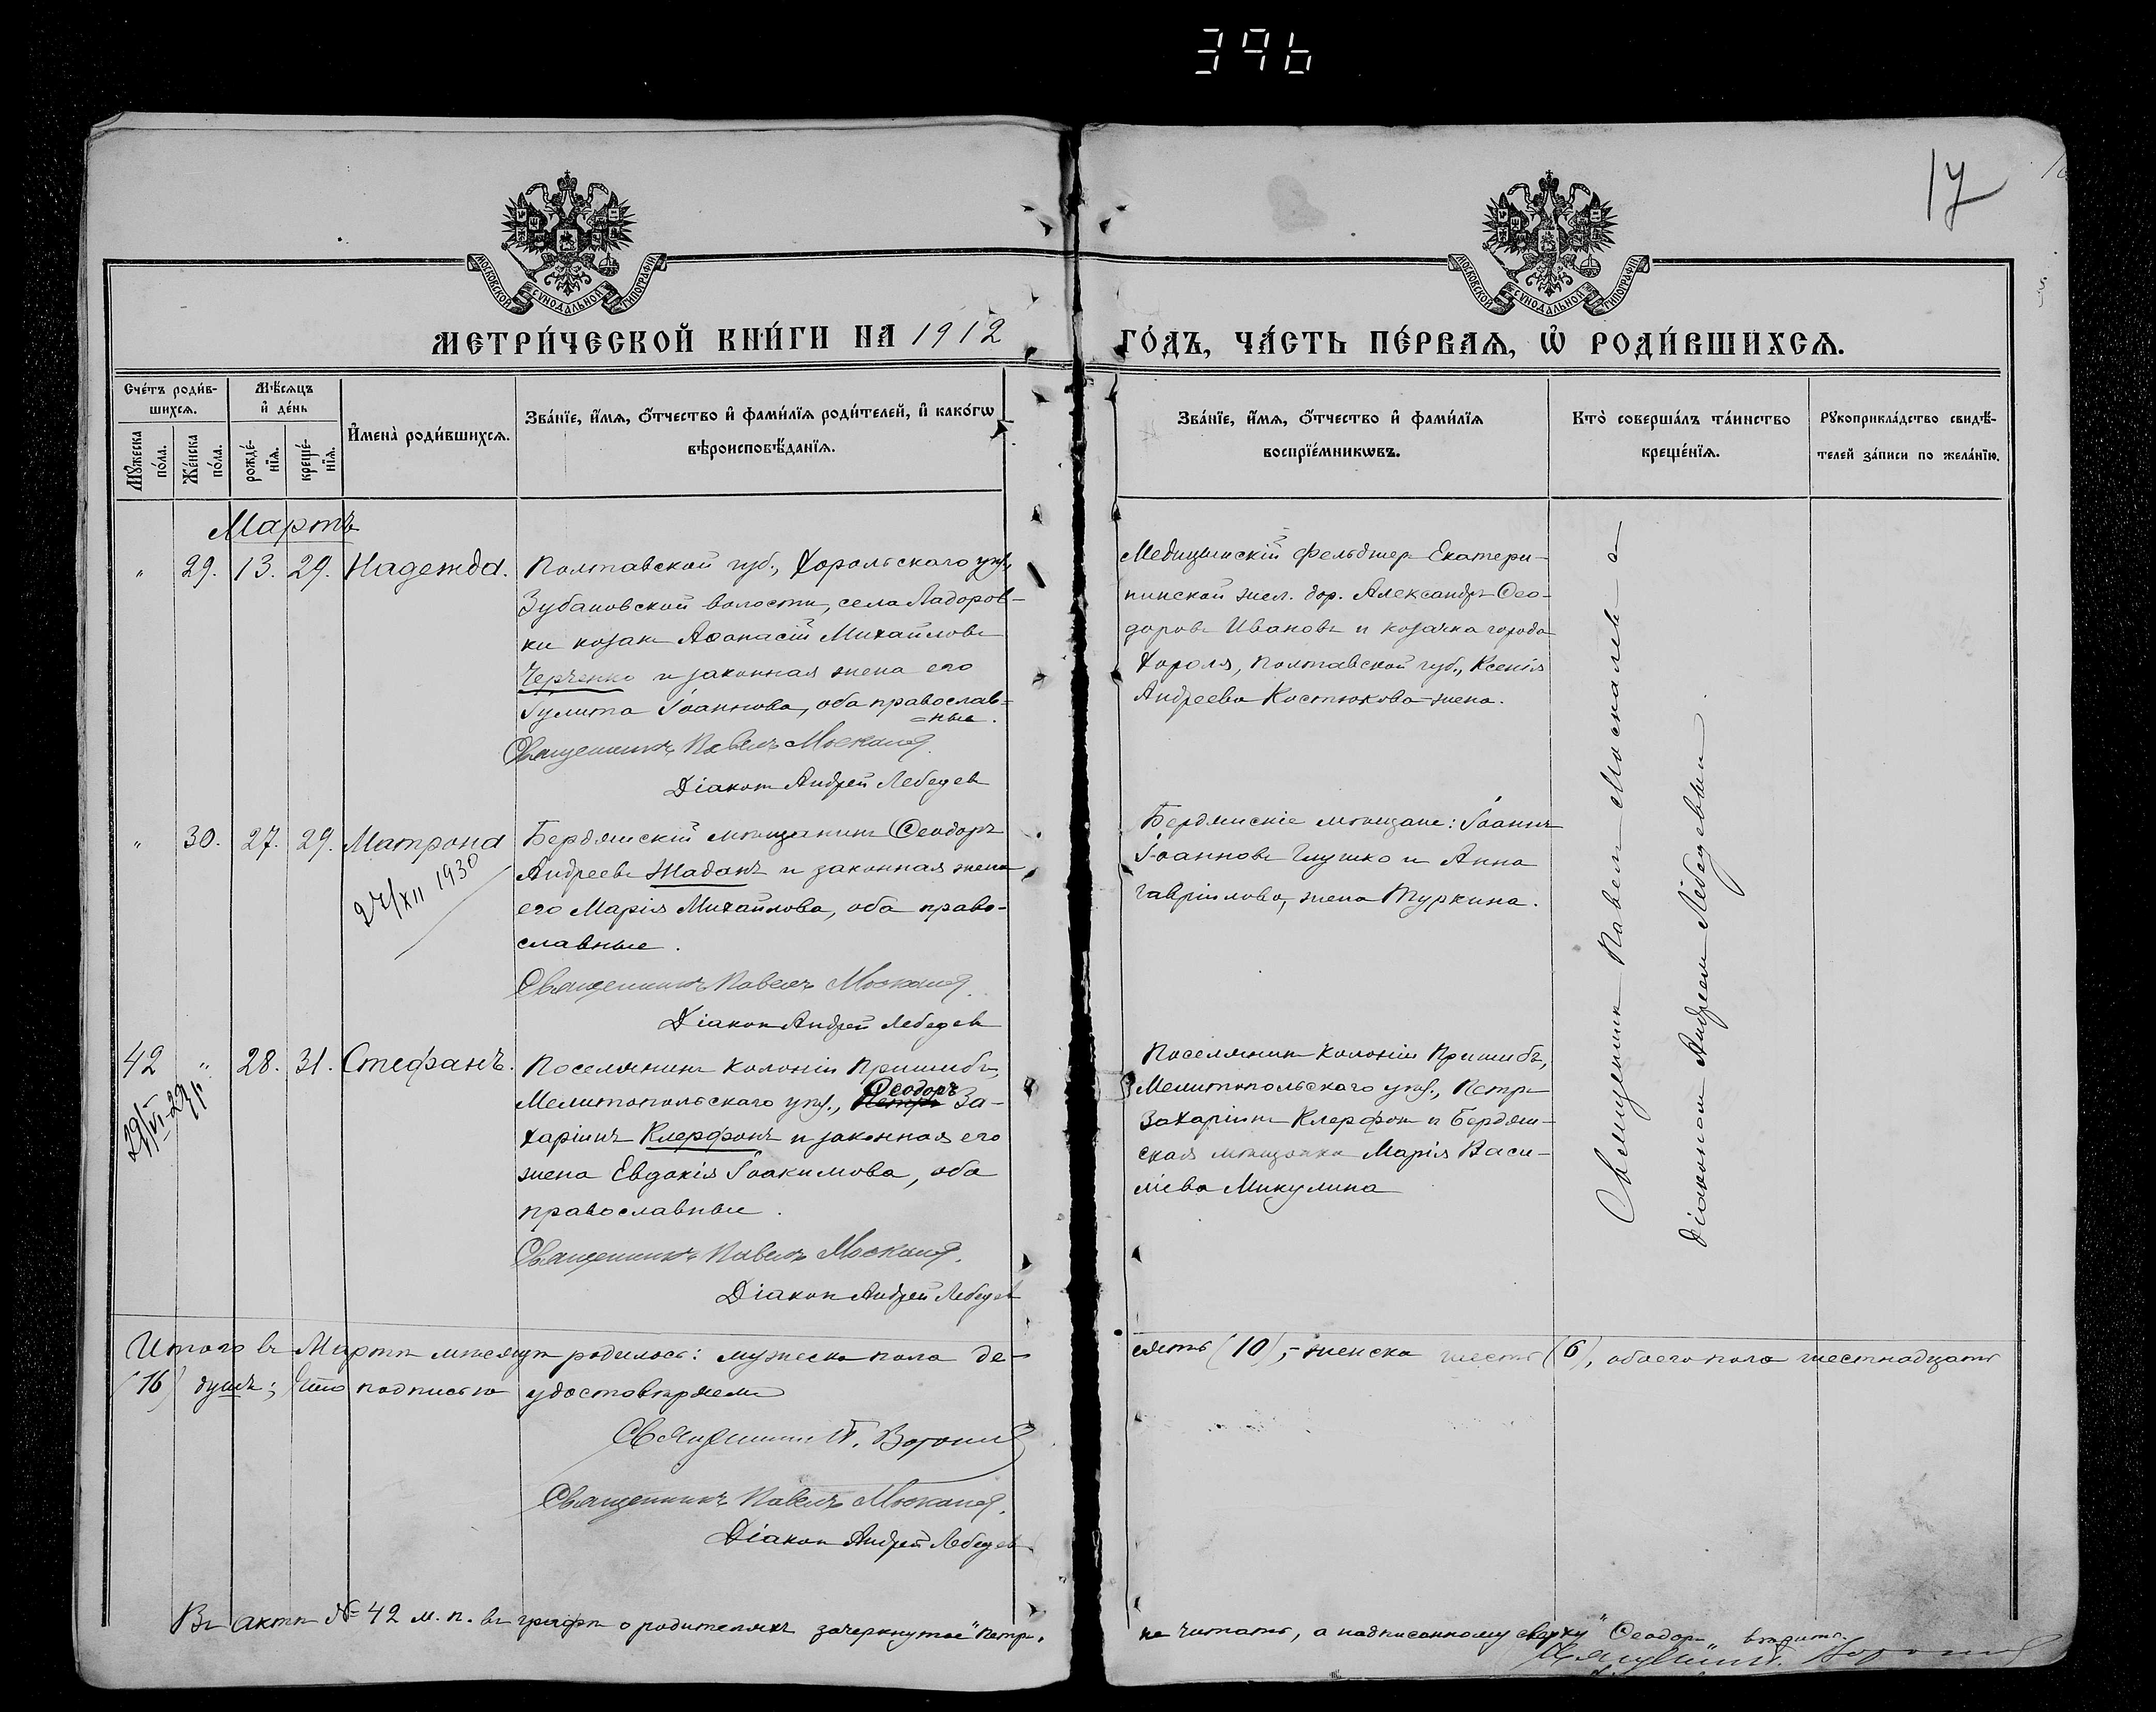 396
17
МОСКОВСКОЙ СѴНОДАЛЬНОЙ ТИПОГРАФІИ
МОСКОВСКОЙ СѴНОДАЛЬНОЙ ТИПОГРАФІИ
МЕТРИ́ЧЕСКОЙ КНИ́ГИ НА 1912
ГО́ДЪ, ЧА́СТЬ ПЕ́РВАЯ, Ѡ҆ РОДИ́ВШИХСЯ.
Сче́тъ роди́в-
шихся.
Мꙋ́жеска по́ла.
Же́нска по́ла.
Мѣ́сяцъ
и҆ де́нь
рожде́-
нїя.
креще́-
нїя.
И҆мена̀ роди́вшихся.
Зва́нїе, и҆́мя, ѻ҆́тчество и҆ фами́лїя роди́телей, и҆ како́гѡ
вѣроисповѣ́данїя.
Зва́нїе, и҆́мя, ѻ҆́тчество и҆ фами́лїя
воспрїе́мникѡвъ.
Кто̀ соверша́лъ та́инство
креще́нїя.
Рꙋкоприкла́дство свидѣ́-
телей за́писи по жела́нїю.
Мартъ
" 29. 13. 29. Надежда.
Полтавской губ., Хорольскаго уѣз.,
Зубановской волости, села Ладоров-
ки козакъ Аѳанасій Михайловъ
Черченко и законная жена его
Іулита Іоаннова, оба православ-
=ные.
Священникъ Павелъ Москалев.
Діаконъ Андрей Лебедев
Медицинскій фельдшеръ Екатери-
нинской жел. дор. Александръ Ѳео-
доровъ Ивановъ и козачка города
Хороля, Полтавской губ., Ксенія
Андреева Костюкова-жена.
" 30. 27. 29. Матрона
27/XII 1930
Бердянскій мѣщанинъ Ѳеодоръ
Андреевъ Жаданъ и законная жена
его Марія Михайлова, оба право-
славные.
Священникъ Павелъ Москалев.
Діаконъ Андрей Лебедев
Бердянскіе мѣщане: Іоаннъ
Іоанновъ Глушко и Анна
Гавріилова, жена Туркина.
42 " 28. 31. Стефанъ.
Поселянинъ колоніи Пришибъ,
Ѳеодоръ
Мелитопольскаго уѣз., Петръ За-
харіинъ Клерфонъ и законная его
жена Евдокія Іоакимова, оба
православные.
Священникъ Павелъ Москалев.
Діаконъ Андрей Лебедев
Поселянинъ колоніи Пришибъ,
Мелитопольскаго уѣз., Петръ
Захаріинъ Клерфонъ и Бердян-
ская мѣщанка Марія Васи-
ліева Микулина
Священникъ Павелъ Москалевъ с
діакономъ Андреемъ Лебедевымъ
Итого въ Мартѣ мѣсяцѣ родилось: мужеска пола де-
сять (10),-женска шесть (6), обоего пола шестнадцать
(16) душъ; что подписью удостовѣряемъ
Священникъ П. Воронин
Священникъ Павелъ Москалев.
Діаконъ Андрей Лебедев
Въ актѣ № 42 м. п. въ графѣ о родителяхъ зачеркнутое "Петръ"
не читать, а надписанному сверху "Ѳеодоръ" вѣрить.